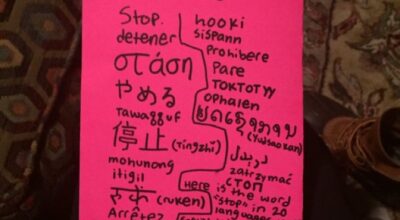 Stop.
detener
στάση
やめる
Tawagguf
停止 (Tingzhi)
mohunong
itigil
(ruken)
Arrêtez
hooki
sispann
Prohibere
Pare
TOKTOTYY
ophalen
(Yusaokan)
zatrzymać
СТОП
Here is the word
"stop" in 20
languages